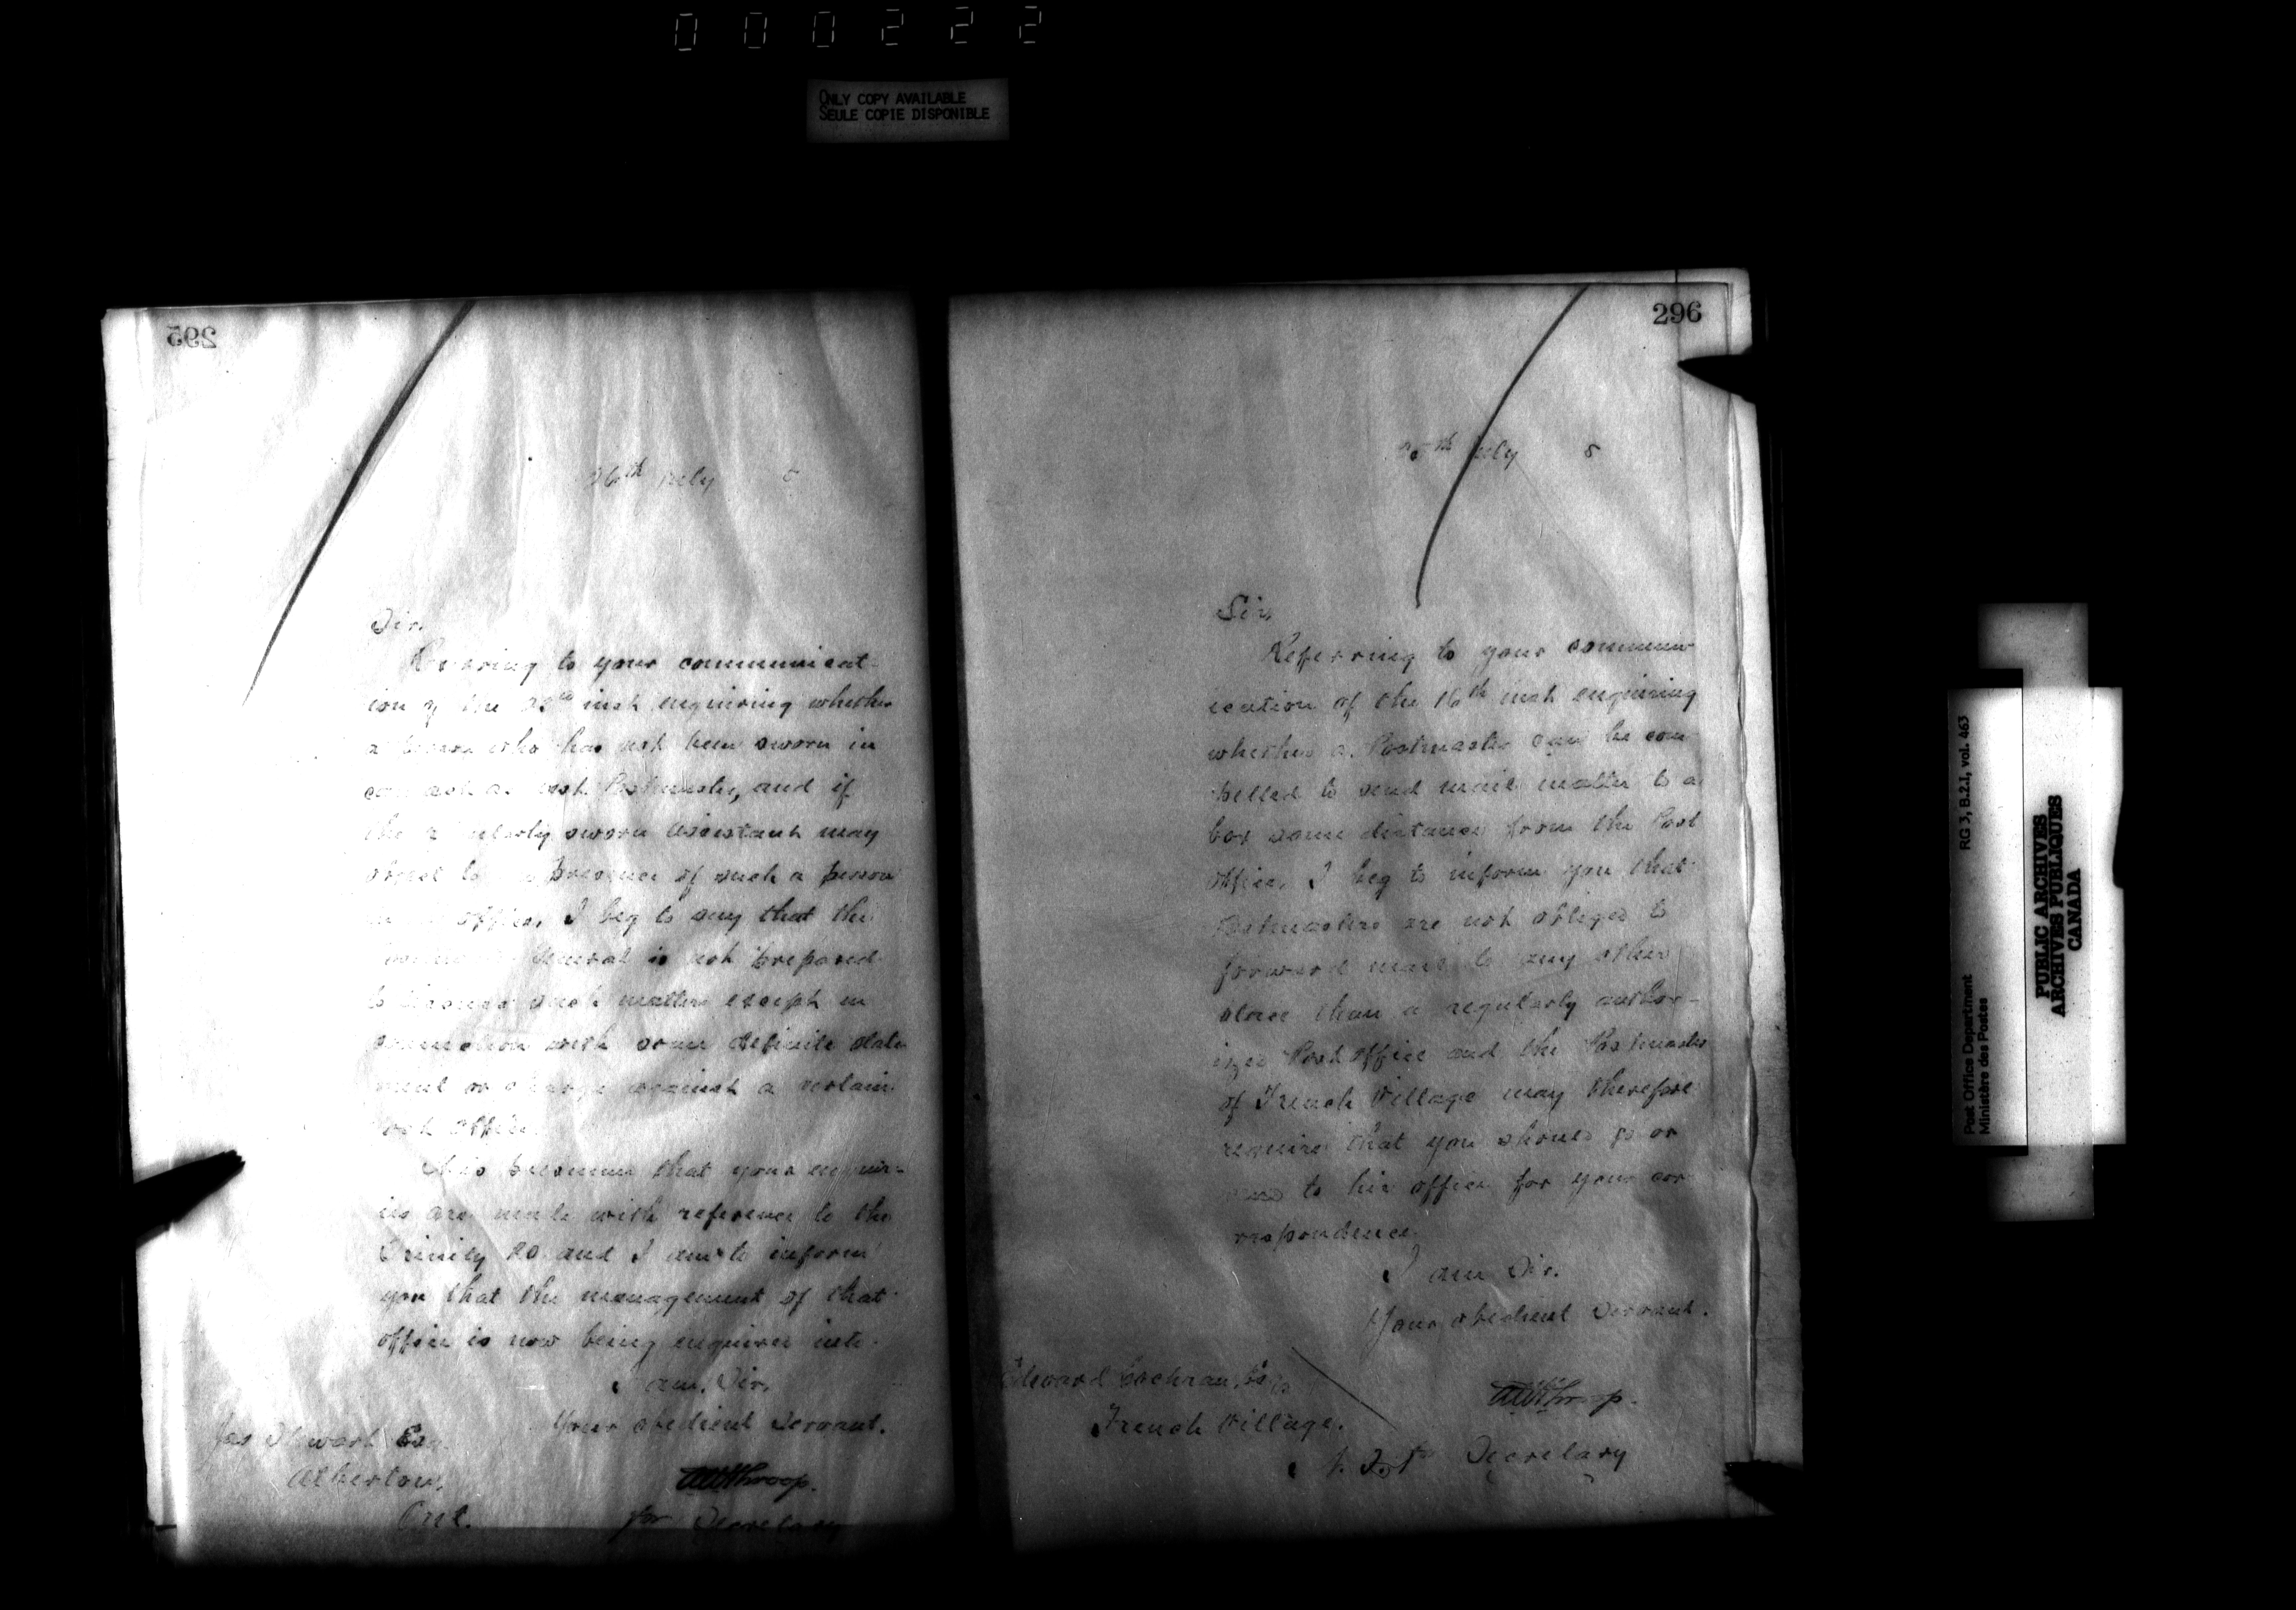 000222
ONLY COPY AVAILABLE
SEULE COPIE DISPONIBLE
295
26th July 5
Sir,
Referring to your communicat-
ion of the inst enquiring whether
a person who has not been sworn in
can act as Asst. Postmaster, and if
the regularly sworn assistant may
object to presence of such a person
in office, I beg to say that the
Postmaster General is not prepared
to discuss such matters except in
connection with some definite state
ment or charge against a certain
Post Office.
It is presumed that your enquir-
ies are made with reference to the
Trinity PO and I am to inform
you that the management of that
office is now being enquired into.
I am, Sir,
Your obedient Servant.
Jas Stewart Esq.
Alberton,
Ont.
for Secretary
296
July 5
Sir,
Referring to your commun-
ication of the 16th inst enquiring
whether a Postmaster can be com-
pelled to send mail matter to a
box some distance from the Post
Office, I beg to inform you that
Postmasters are not obliged to
forward mail to any other
place than a regularly author-
ized Post Office and the Postmaster
of French Village may therefore
require that you should go or
send to his office for your cor-
respondence.
I am Sir.
Your obedient Servant.
Edward Cochran, Esq
French Village.
Secretary
RG 3, B.2.1, vol. 463
Post Office Department
Ministère des Postes
PUBLIC ARCHIVES
ARCHIVES PUBLIQUES
CANADA